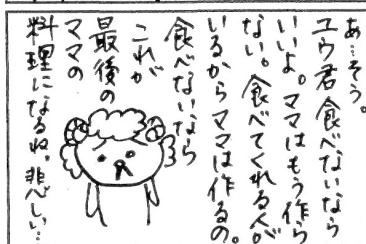 あ…そう。
ユウ君食べないなら
いいよ。ママはもう作ら
ない。食べてくれる人が
いるからママは作るの。
食べないなら
これが
最後の
ママの
料理になるね。悲しい…